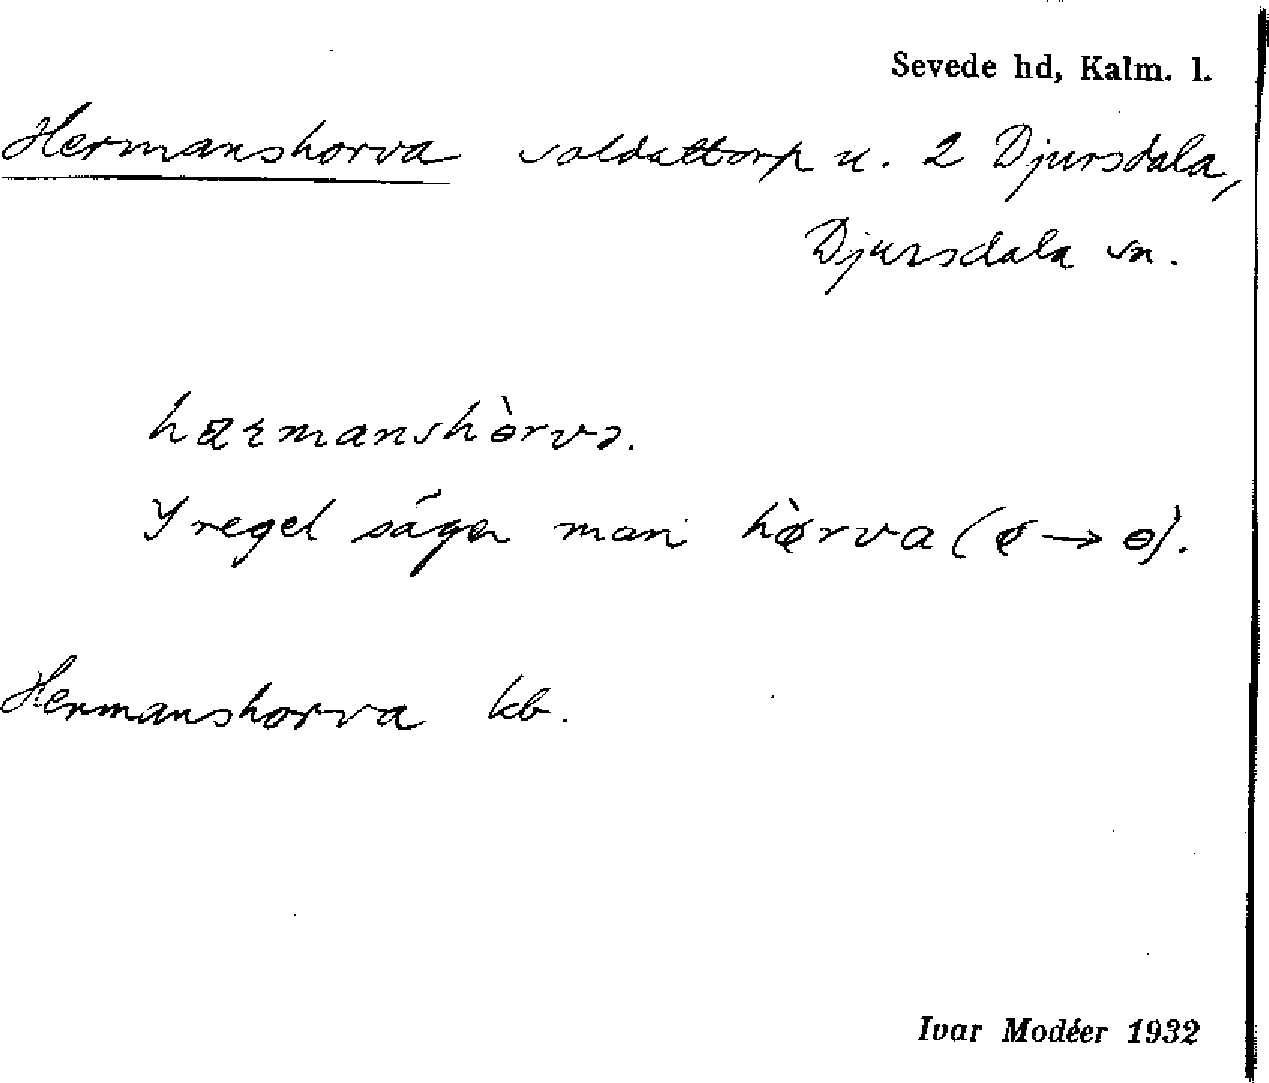 Sevede hd, Kalm. l.
Hermanshorva soldattorp u. 2 Djursdala,
Djursdala sn.
hærmanshɵ̀rvɔ.
I regel säger man hø̀rva (ø → ɵ).
Hermanshorva kb.
Ivar Modéer 1932